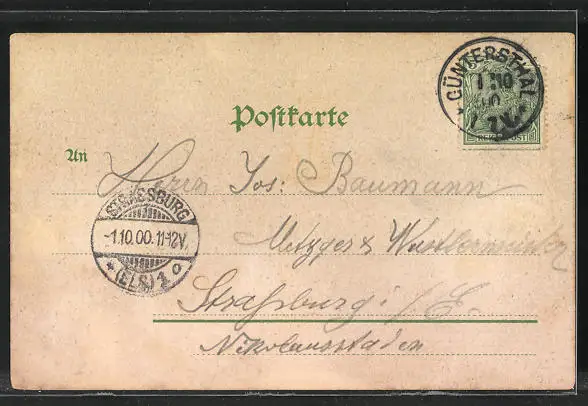 GÜNTERSTHAL
1 10
7-8V.
REICHSPOST
Postkarte
An
Herrn Jos: Baumann
STRASSBURG
-1.10.00.11-12V.
* (ELS) 1 o
Metzger &
Straßburg i/E.
Nikolausstaden